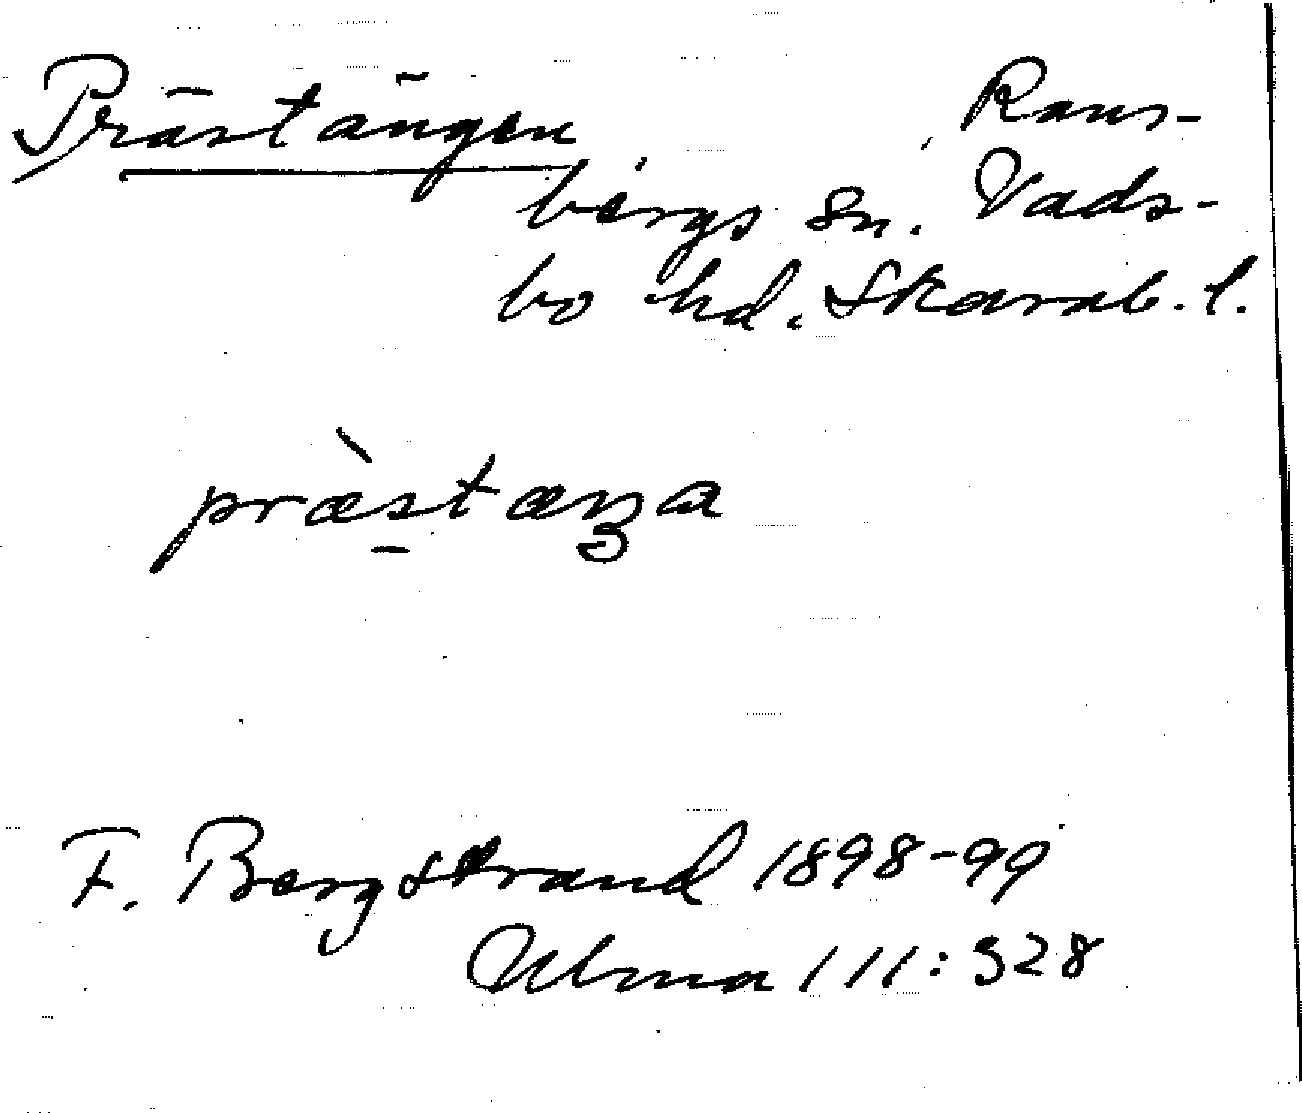 Prästängen, Rans-
bergs sn. Vads-
bo hd. Skarab. l.
præ̀stæŋa
F. Bergstrand 1898-99
Ulma 111:328